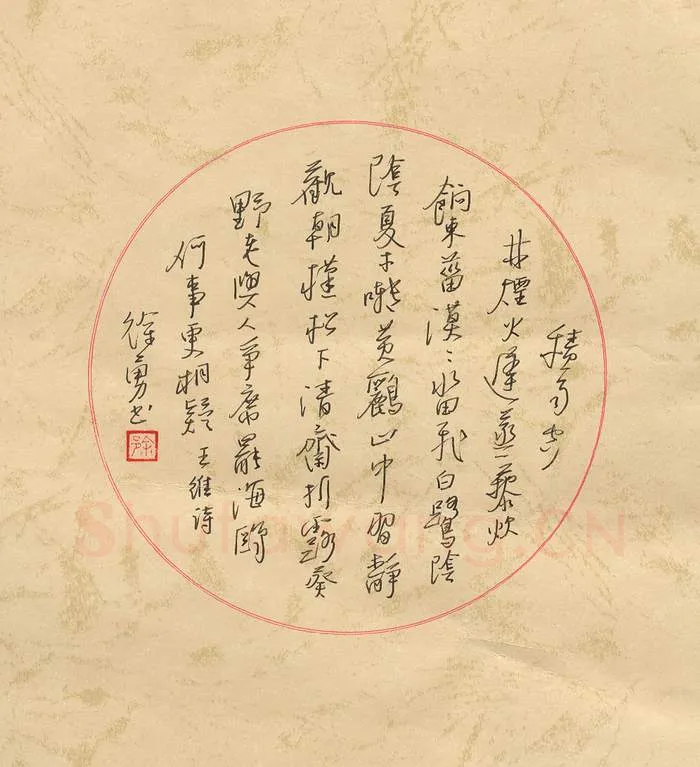 積雨空
林煙火遲蒸藜炊
餉東菑漠〻水田飛白鷺陰
陰夏木囀黃鸝山中習靜
觀朝槿松下清齋折露葵
野老與人爭席罷海鷗
何事更相疑 王維詩
徐勇书
徐
Shufawang.CN